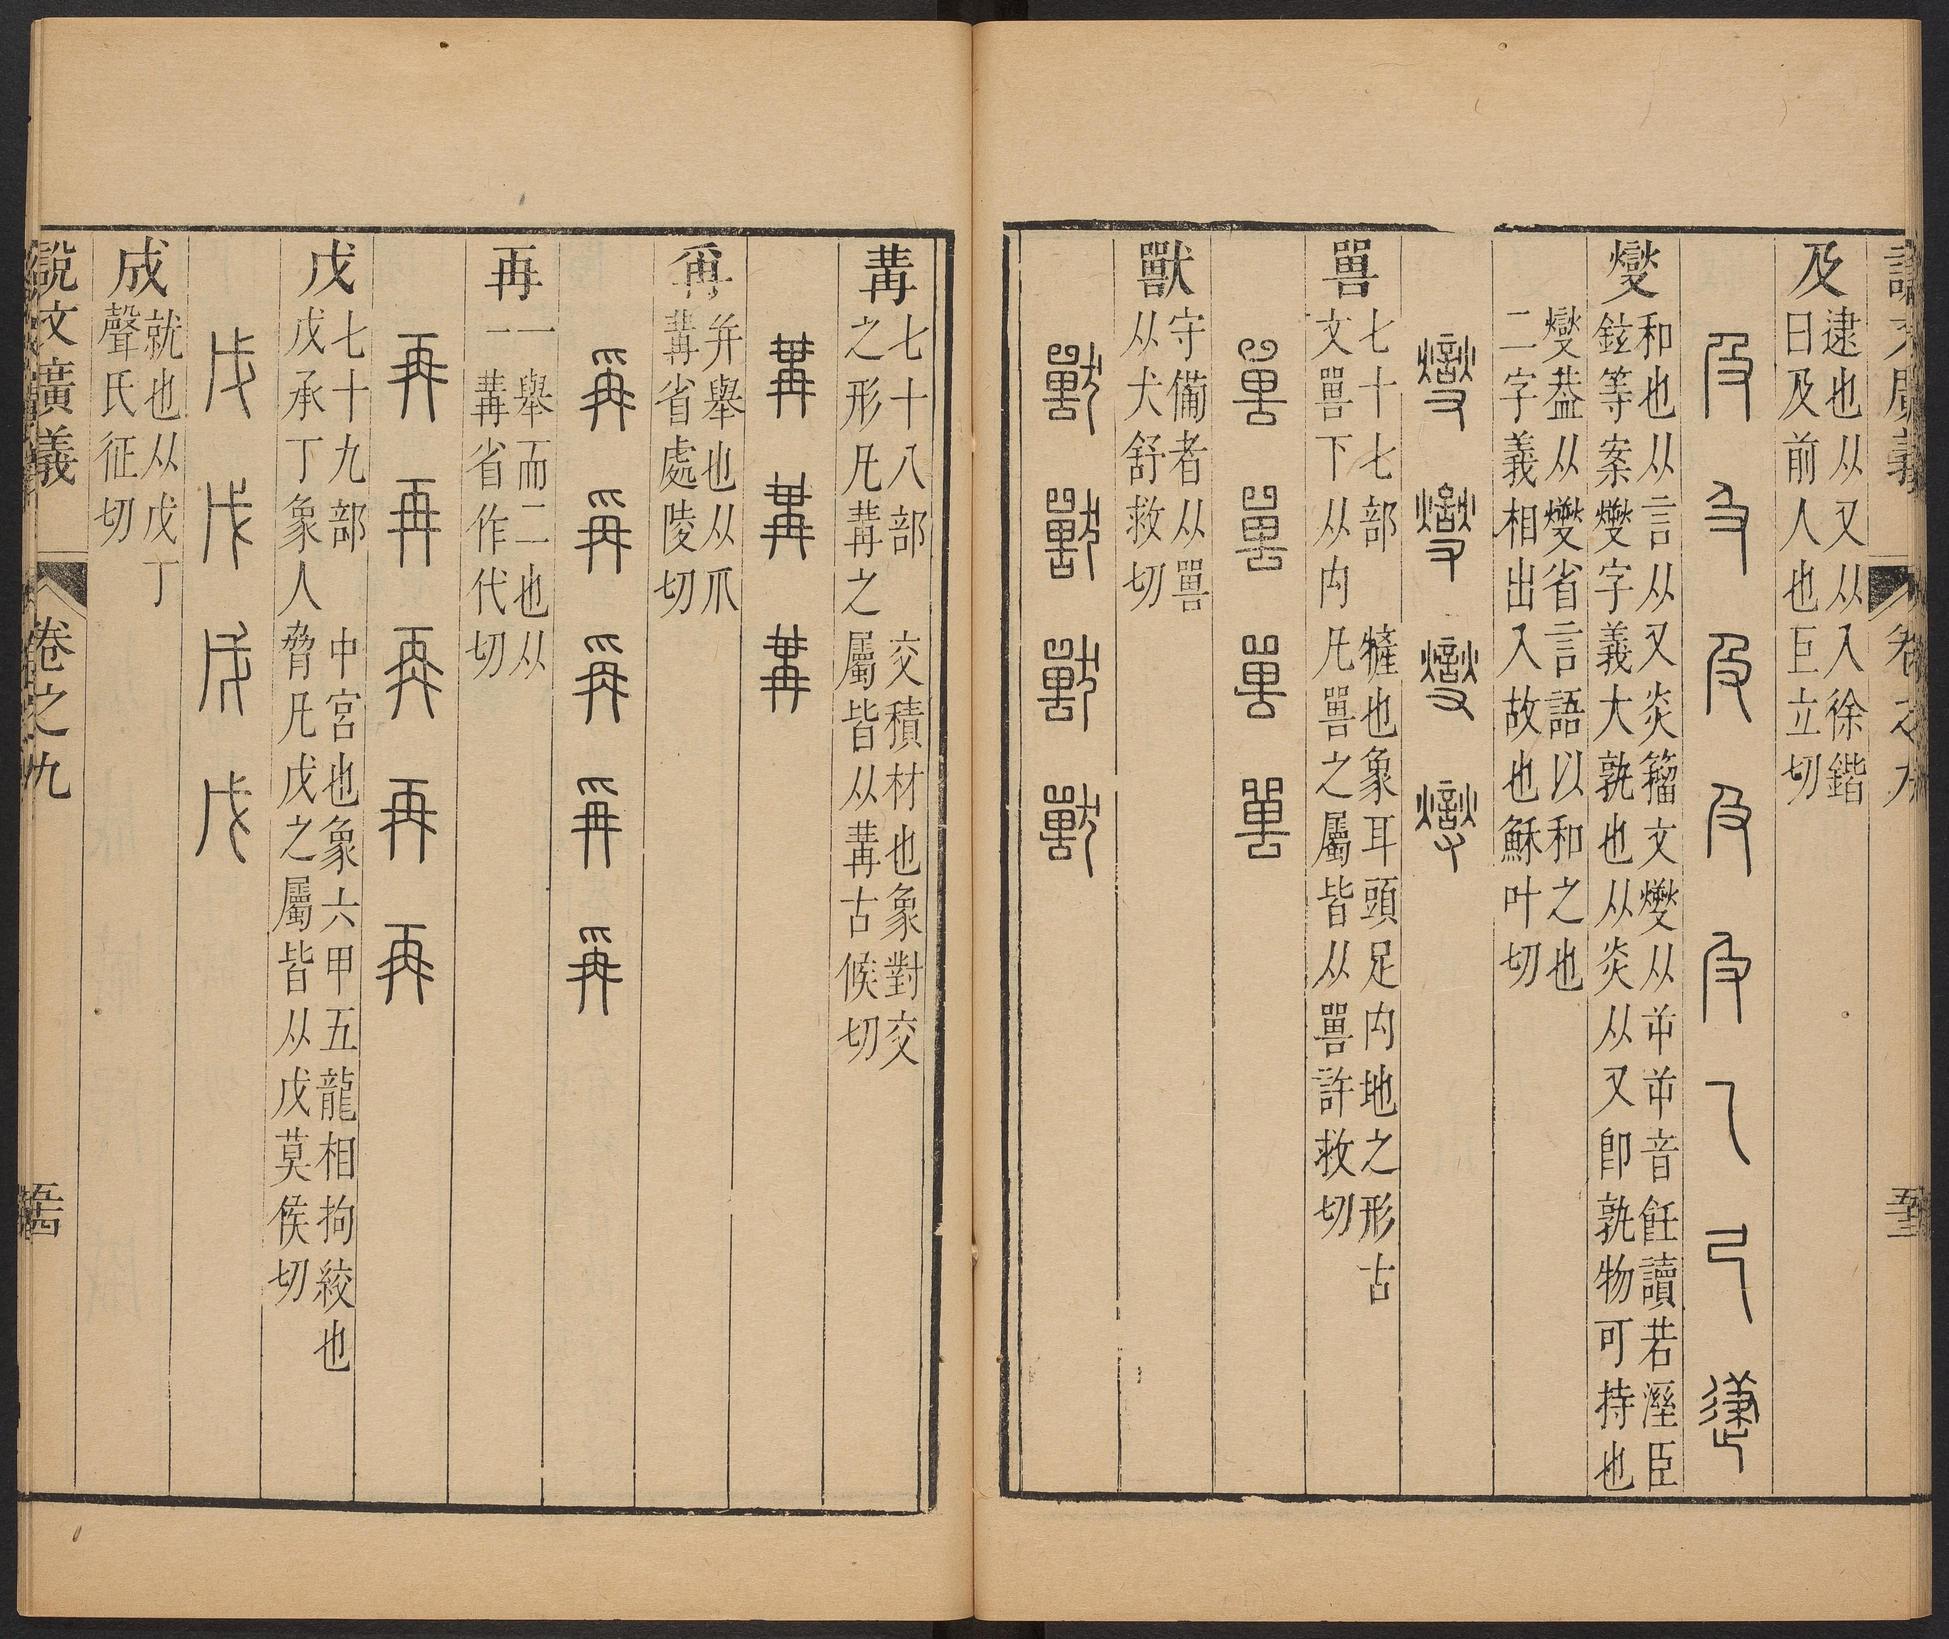 說文廣義 卷之九 五十三
及 逮也从又从入徐鍇
曰及前人也巨立切
燮 和也从言从又炎籀文燮从𢆉𢆉音飪讀若溼臣
鉉等案燮字義大孰也从炎从又卽孰物可持也
燮葢从燮省言語以和之也
二字義相出入故也穌叶切
嘼 七十七部 㹌也象耳頭足内地之形古
文嘼下从内 凡嘼之屬皆从嘼許救切
獸 守備者从嘼
从犬舒救切
冓 七十八部 交積材也象對交
之形凡冓之屬皆从冓古候切
爯 并舉也从爪
冓省處陵切
再 一舉而二也从
一冓省作代切
戊 七十九部 中宮也象六甲五龍相拘絞也
戊承丁象人脅凡戊之屬皆从戊莫候切
成 就也从戊丁
聲氏征切
說文廣義 卷之九 五十四